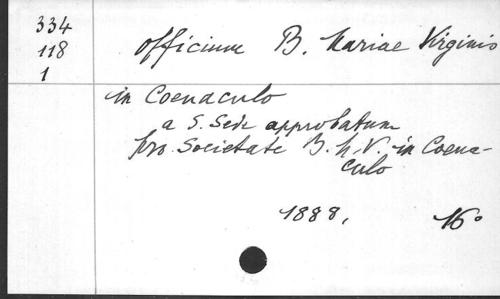 334
118
1
Officium B. Mariae Virginis
in Coenaculo
a S. Sede approbatum
pro Societate B. M. V. in Coena-
culo
1888, 16°